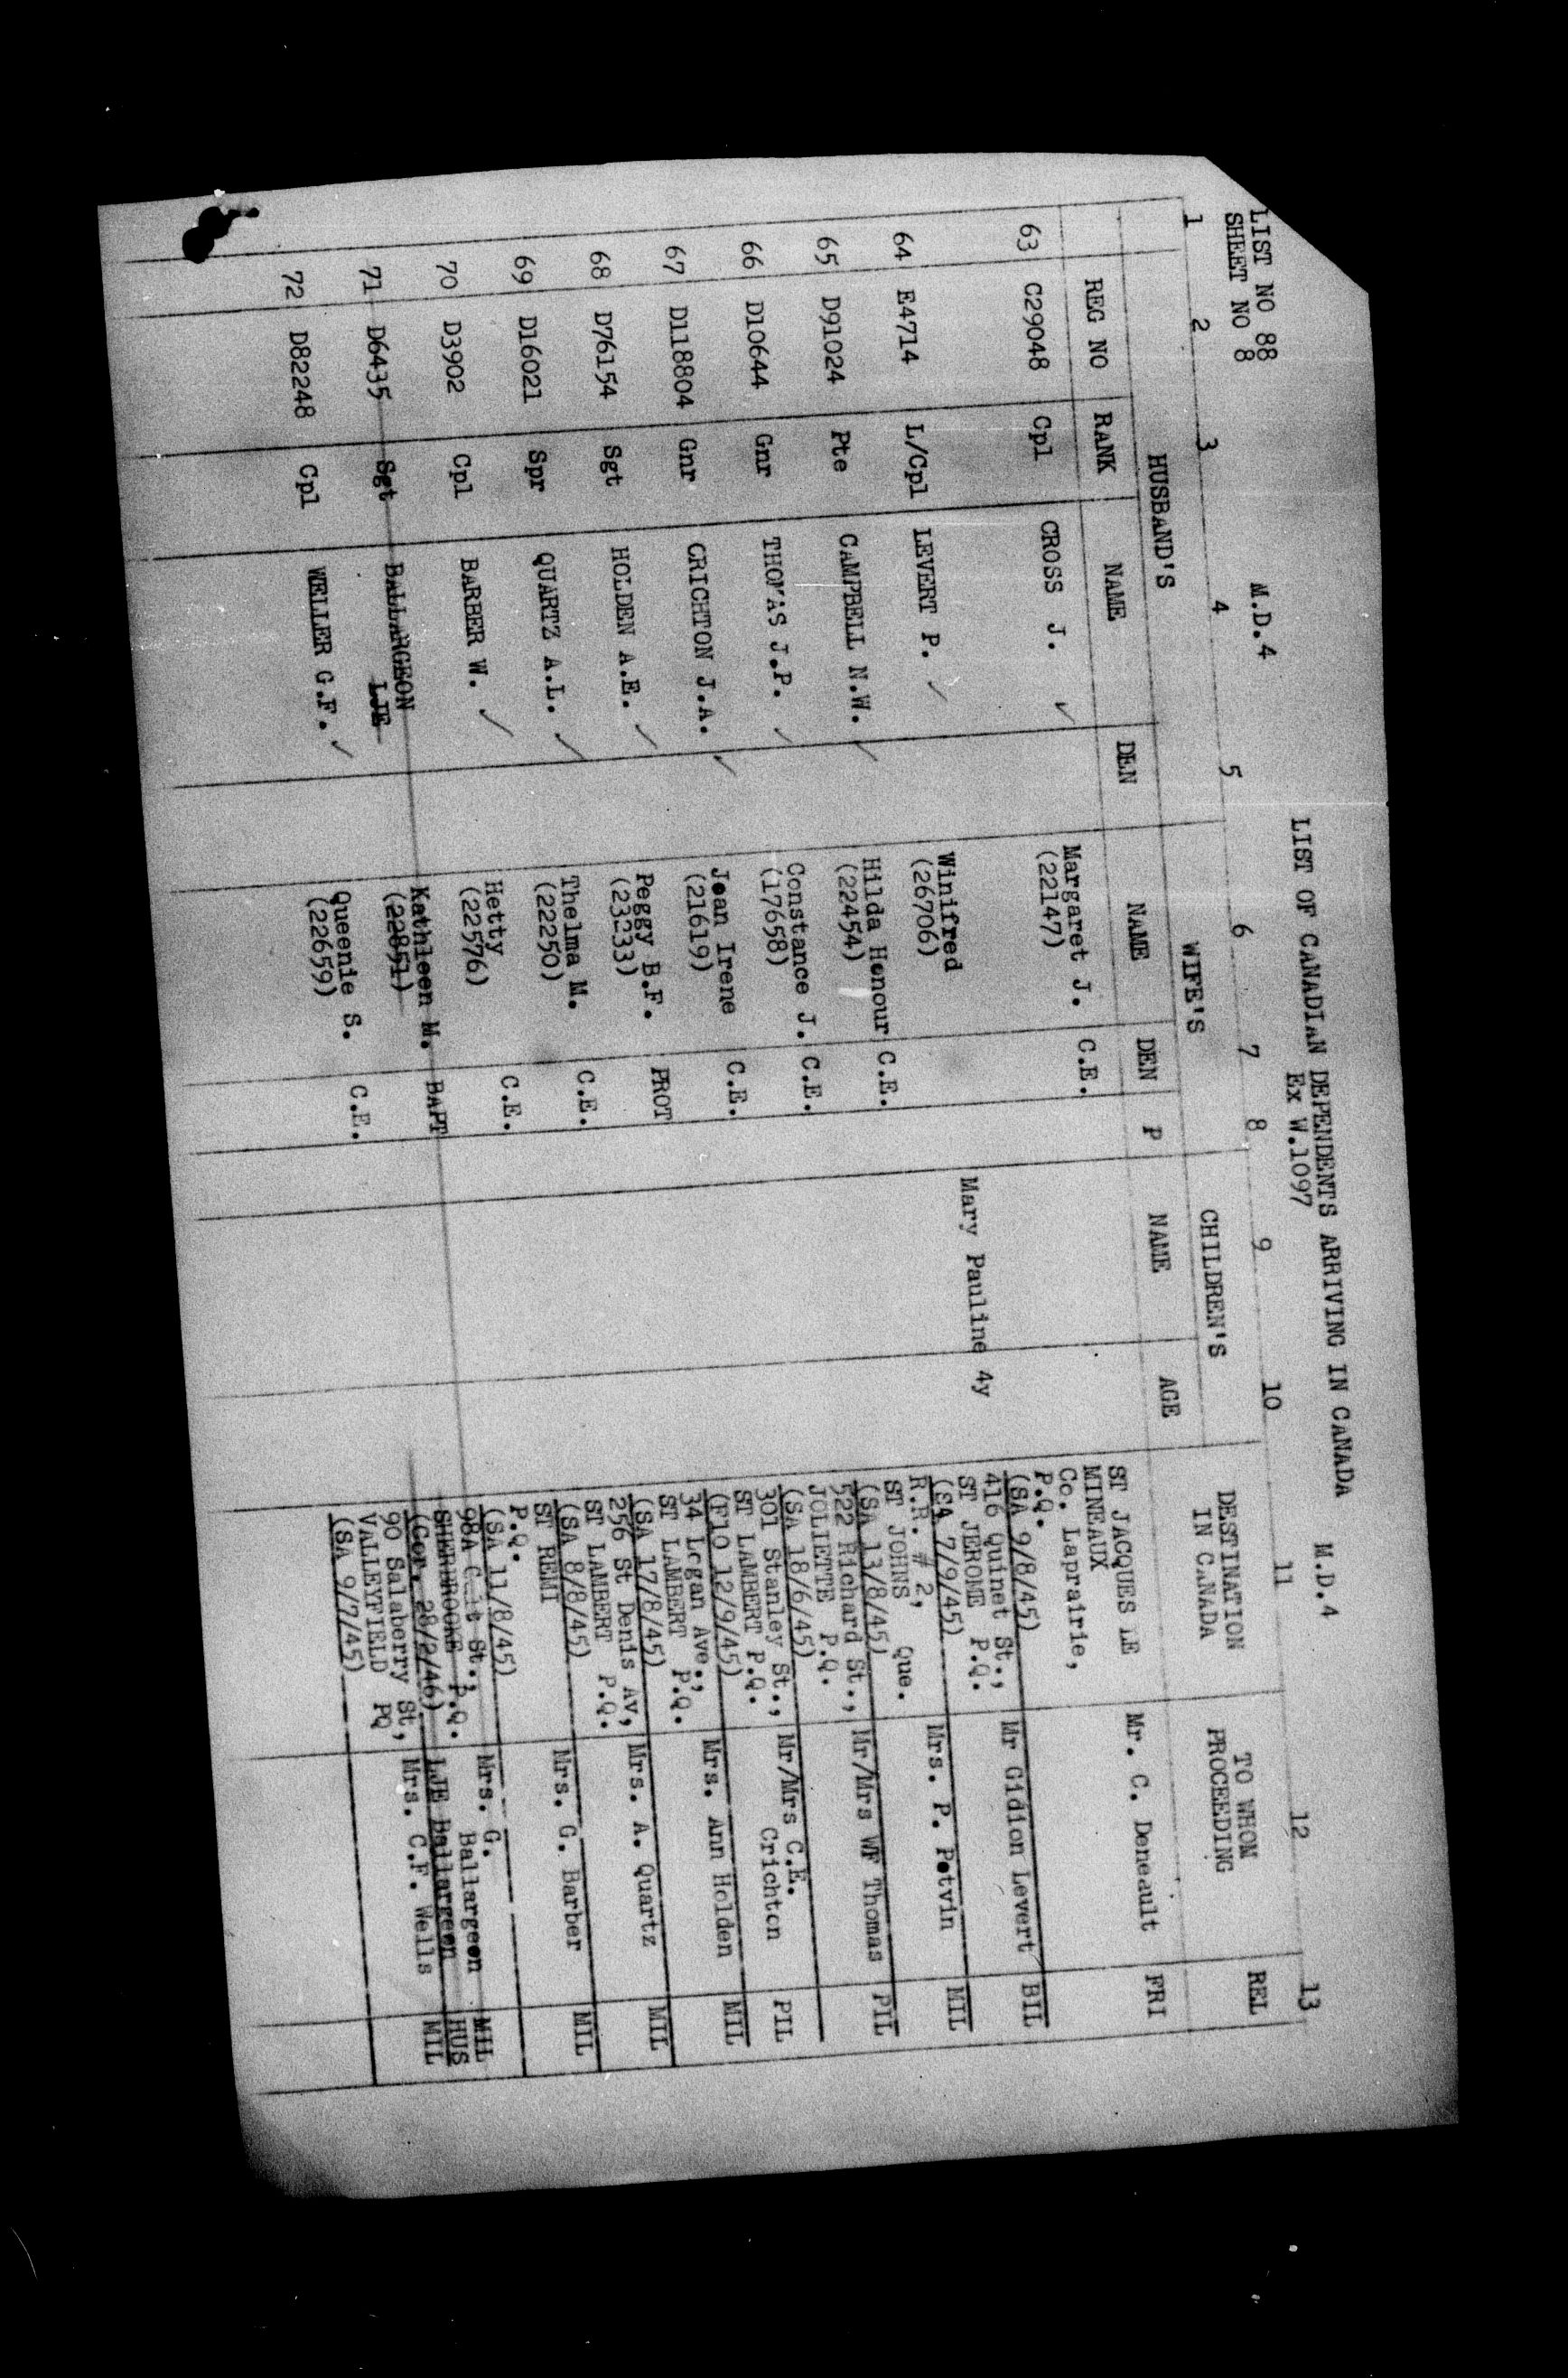 LIST NO 88 M.D.4 LIST OF CANADIAN DEPENDENTS ARRIVING IN CANADA M.D.4
SHEET NO 8 Ex W.1097
1 2 3 4 5 6 7 8 9 10 11 12 13
HUSBAND'S WIFE'S CHILDREN'S DESTINATION TO WHOM REL
IN CANADA PROCEEDING
REG NO RANK NAME DEN NAME DEN P NAME AGE
63 C29048 Cpl CROSS J. ✓ Margaret J. C.E. ST JACQUES LE Mr. C. Deneault FRI
(22147) MINEAUX
Co. Laprairie,
P.Q.
(SA 9/8/45)
64 E4714 L/Cpl LEVERT P. ✓ Winifred Mary Pauline 4y 416 Quinet St., Mr Gidion Levert BIL
(26706) ST JEROME P.Q.
(SA 7/9/45)
65 D91024 Pte CAMPBELL N.W. ✓ Hilda Honour C.E. R.R. # 2, Mrs. P. Potvin MIL
(22454) ST JOHNS Que.
(SA 13/8/45)
66 D10644 Gnr THOMAS J.P. ✓ Constance J. C.E. 522 Richard St., Mr/Mrs WF Thomas PIL
(17658) JOLIETTE P.Q.
(SA 18/6/45)
67 D118804 Gnr CRICHTON J.A. ✓ Jean Irene C.E. 301 Stanley St., Mr/Mrs C.E. PIL
(21619) ST LAMBERT P.Q. Crichton
(F10 12/9/45)
68 D76154 Sgt HOLDEN A.E. ✓ Peggy B.F. PROT 34 Logan Ave., Mrs. Ann Holden MIL
ST LAMBERT P.Q.
(SA 17/8/45)
69 D16021 Spr QUARTZ A.L. ✓ Thelma M. C.E. 256 St Denis Av, Mrs. A. Quartz MIL
(22250) ST LAMBERT P.Q.
(SA 8/8/45)
70 D3902 Cpl BARBER W. ✓ Hetty C.E. ST REMI Mrs. G. Barber MIL
(22576) P.Q.
(SA 11/8/45)
71 D6435 Sgt BALLARGEON Kathleen M. BAPT 98A St., Mrs. G. MIL
LJE (22851) SHERBROOKE P.Q. Ballargeon
(Cor. 28/2/46) LJE Ballargeon HUS
72 D82248 Cpl WELLER G.F. ✓ Queenie S. C.E. 90 Salaberry St, Mrs. C.F. Wells MIL
(22659) VALLEYFIELD PQ
(SA 9/7/45)